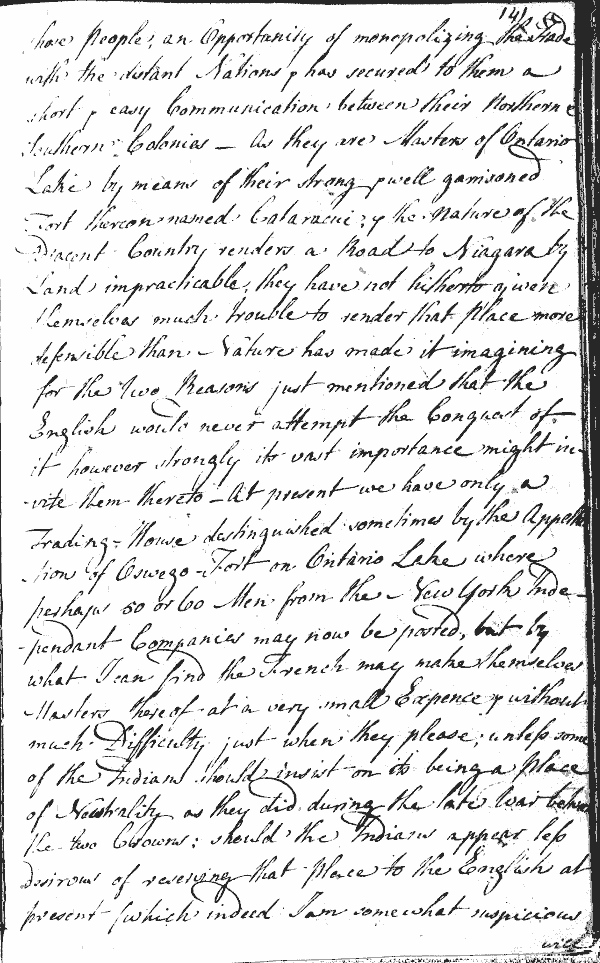 141
those People, an Opportunity of monopolizing the Trade
with the distant Nations & has secured to them a
short & easy Communication between their Northern &
Southern Colonies — As they are Masters of Ontario
Lake by means of their strong & well garrisoned
Fort thereon named Cataracui; & the Nature of the
Adjacent Country renders a Road to Niagara by
Land impracticable, they have not hitherto given
themselves much trouble to render that Place more
defensible than Nature has made it imagining
for the two Reasons just mentioned that the
English would never attempt the Conquest of
it however strongly its vast importance might in-
-vite them thereto — At present we have only a
Trading-House distinguished sometimes by the Appella
-tion of Oswego-Fort on Ontario Lake where
perhaps 50 or 60 Men from the New York Inde-
-pendant Companies may now be posted, but by
what I can find the French may make themselves
Masters thereof at a very small Expence & without
much Difficulty just when they please; unless some
of the Indians should insist on its being a Place
of Neutrality as they did during the late War between
the two Crowns: should the Indians appear less
desirous of reserving that place to the English at
present (which indeed I am somewhat suspicious
will